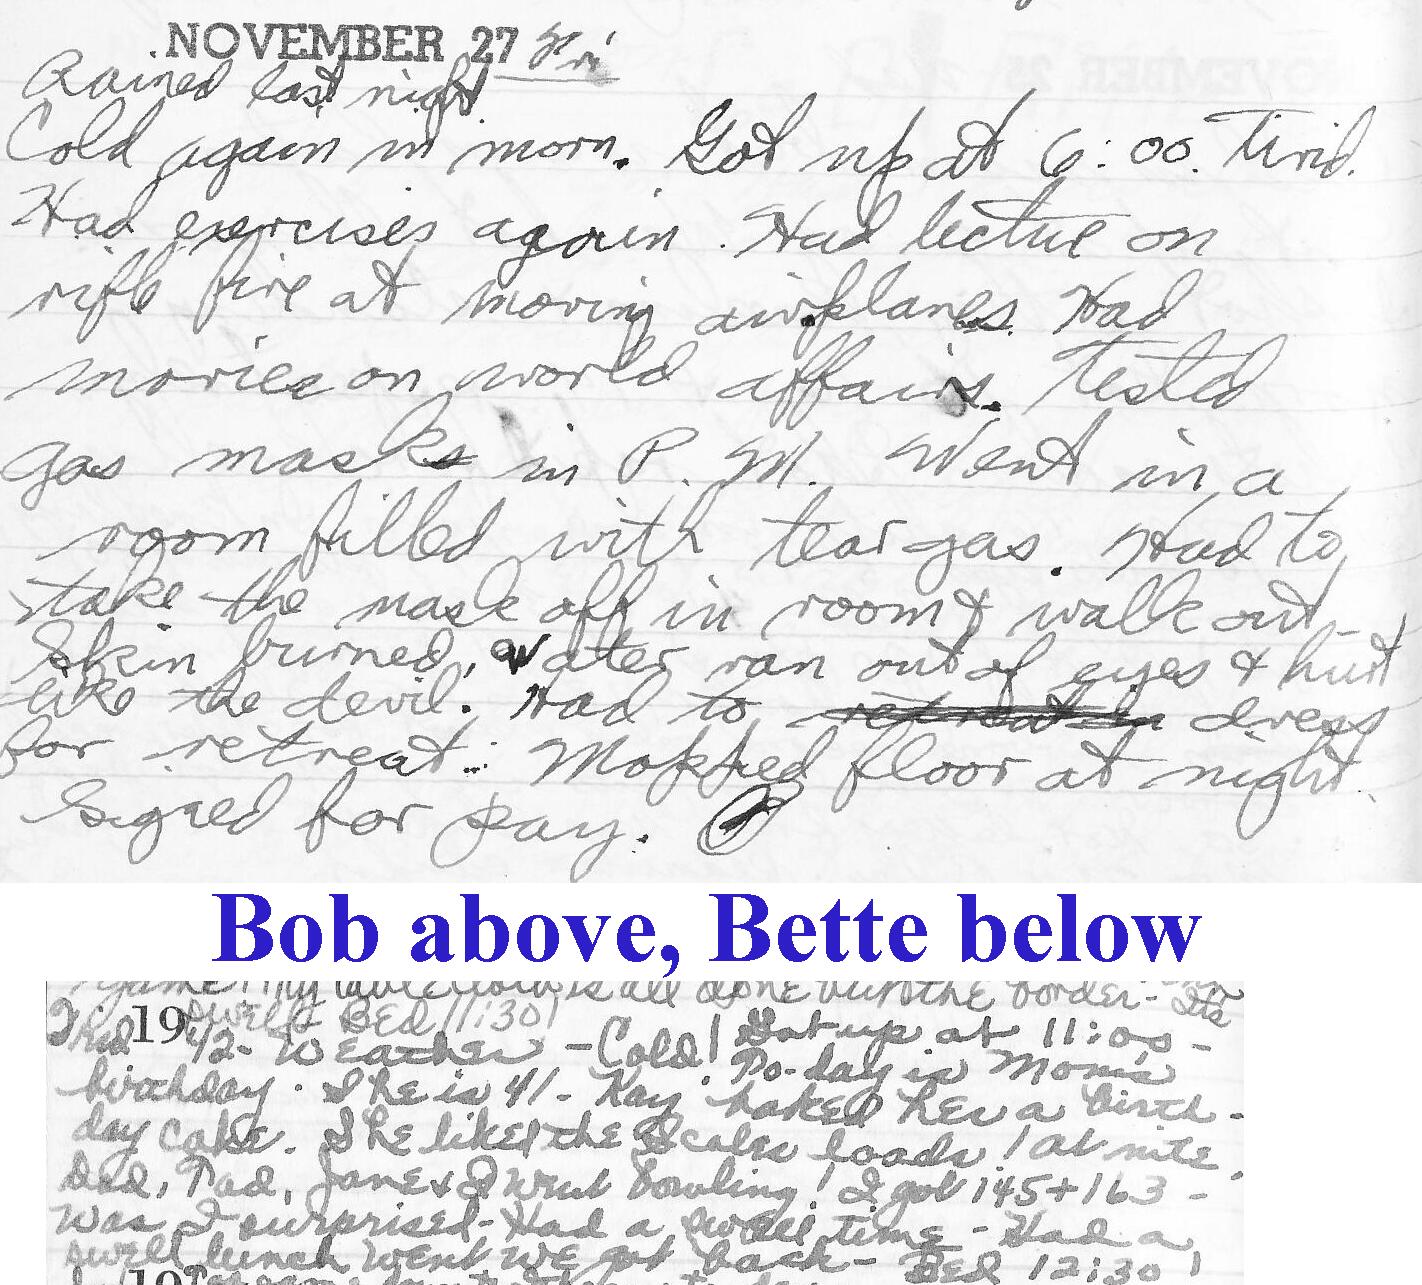 NOVEMBER 27 Fri
Rained last night
Cold again in morn. Got up at 6:00. Tired.
Had exercises again. Had lecture on
rifle fire at moving airplanes. Had
movies on world affairs. Tested
gas masks in P.M. Went in a
room filled with tear gas. Had to
take the mask off in room & walk out
Skin burned, water ran out of eyes & hurt
like the devil. Had to retreat in dress
for retreat. Mopped floor at night.
Signed for pay.
Bob above, Bette below
is all done but the border-
swell- BED 11:30!
1942- Weather - Cold! Got up at 11:00-
To-day is Mom's
birthday. She is 41- Kay baked her a birth-
day cake. She liked the scales loads! at nite,
Dad, Tad, Jane & I went bowling! I got 145+163-
Was I surprised- Had a swell time- Had a
swell lunch went we got back- BED 12:30!
19